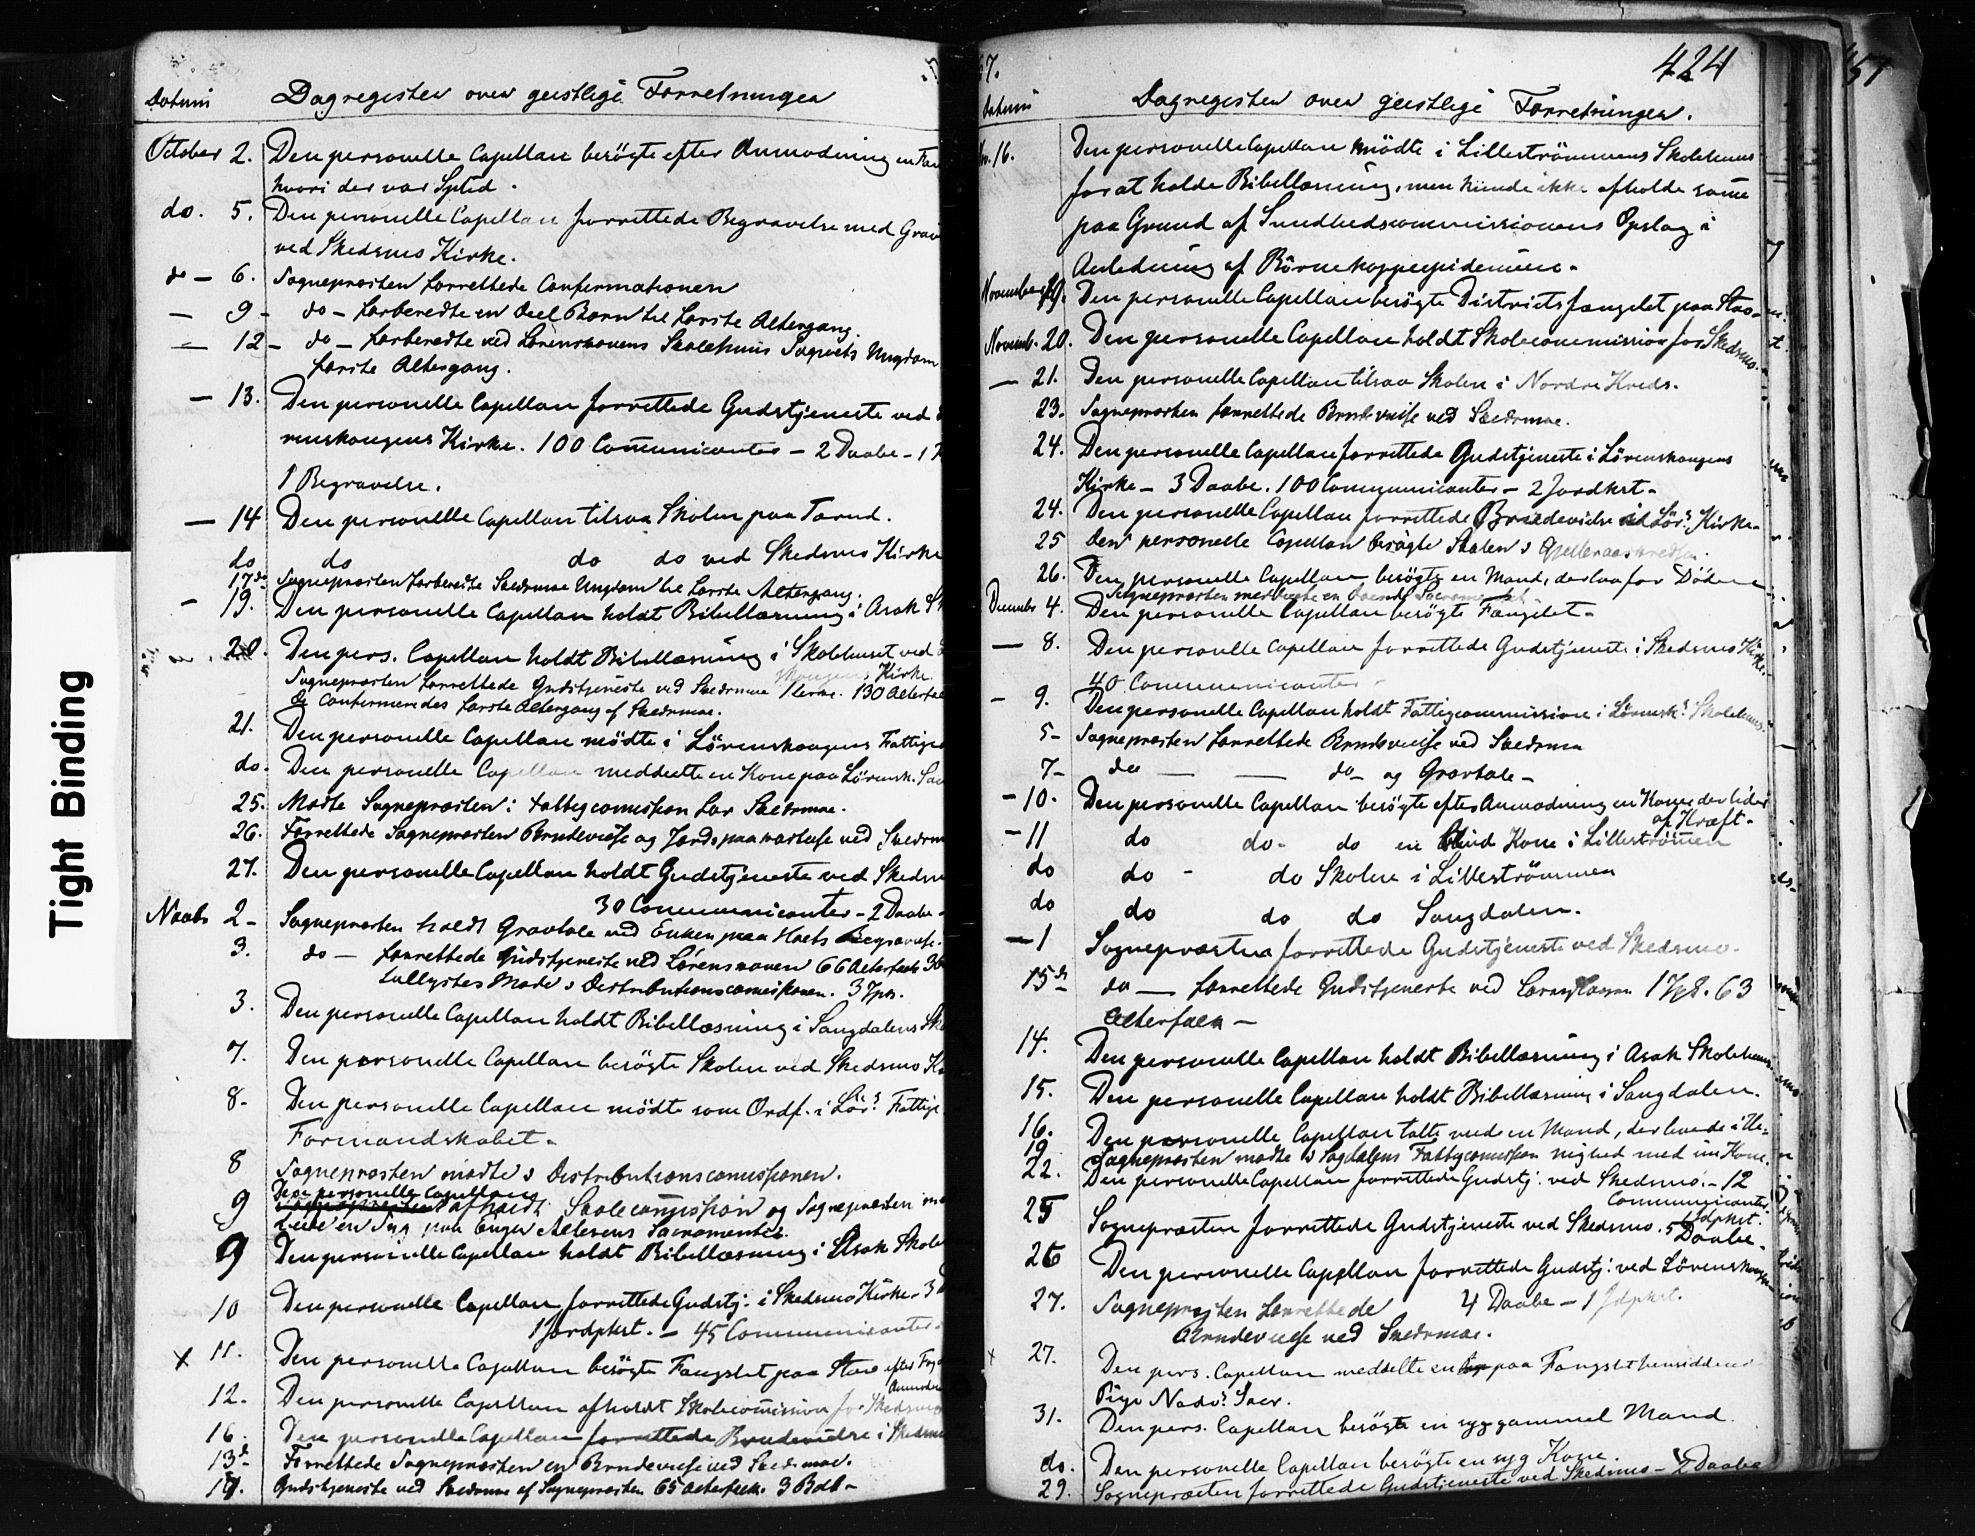 Tight Binding
Datum Dagregister over geistlige Forretninger
October 2. Den personelle Capellan besögte efter Anmodning en
hvori der var Spled.
do. 5. Den personelle Capellan forrettede Begravelse med
ved Skedsmo Kirke.
do – 6. Sognepræsten forrettede Confirmationen
– 9 – do – forberedte en Deel Børn til første Altergang.
– 12 – do – forberedte ved Lørenskovens Skolehuus Sognets Ungdom
første Altergang.
– 13. Den personelle Capellan forrettede Gudstjeneste ved
renskougens Kirke. 100 Com̅unicanter – 2 Daabe – 1
1 Begravelse.
– 14 Den personelle Capellan tilsaa Skolen paa Tærud.
do do do do ved Skedsmo Kirke
17de Sognepræsten forberedte Skedsmoe Ungdom til første Altergang.
– 19. Den personelle Capellan holdt Bibellæsning i Asak
20. Den pers. Capellan holdt Bibellæsning i Skolehuset ved
skougens Kirke.
Sognepræsten forrettede Gudstjeneste ved Skedsmoe 130
Og Confirmeredes første Altergang af Skedsmoe.
21. Den personelle Capellan mödte i Lörenskougens
do. Den personelle Capellan meddeelte en Kone paa Lörensk.
25. Mødte Sognepræsten i Fattigcommission for Skedsmoe.
26. Forrettede Sognepræsten Brudevielse og Jordspaakastelse ved
27. Den personelle Capellan holdt Gudstjeneste ved
30 Communicanter – 2 Daabe –
2 – Sognepræsten holdt Gravtale ved Enken paa Begravelse.
3. do – forrettede Gudstjeneste ved Lørenskoven 66
Møde i Distributionscommissionen.
3. Den personelle Capellan holdt Bibellæsning i Sangdalens
7. Den personelle Capellan besögte Skolen ved Skedsmo
8. Den personelle Capellan mödte som Ordf. i Lörs
Formandskabet –
8 Sognepræsten mødte i Distributionscommissionen.
9 Den personelle Capellan
afholdt Skolecommission og Sognepræsten
en Syg paa Alterens Sacramente.
9 Den personelle Capellan holdt Bibellæsning i Asak
10 Den personelle Capellan forrettede Gudstj. i Skedsmo Kirke. 3
1 Jordpkst. – 45 Communicanter.
x 11. Den personelle Capellan besögte Fængslet paa efter
12. Den personelle Capellan afholdt Skolecommission for Skedsmo
16. Den personelle Capellan forrettede Brudevielse i
13de Forrettede Sognepræsten en Brudevielse ved Skedsmoe.
17. Gudstjeneste ved Skedsmoe af Sognepræsten 65 3
67. 424
Datum Dagregister over geistlige Forretninger.
16. Den personelle Capellan mödte i Lilleströmmens Skolehuus
for at holde Bibellæsning, men kunde ikke afholde som̅e
paa Grund af Sundhedscommissionens Opslag i
Anledning af Börnekoppeepidemien.
November 19. Den personelle Capellan besögte Districtsfængslet paa
Novemb. 20. Den personelle Capellan holdt Skolecommission for Skedsmo.
– 21. Den personelle Capellan tilsaa Skolen i Nordre Kreds.
23. Sognepræsten forrettede Brudevielse ved Skedsmoe.
24. Den personelle Capellan forrettede Gudstjeneste i Lörenskougens
Kirke – 3 Daabe. 100 Communicanter – 2 Jordkst –
24. Den personelle Capellan forrettede Brudevielse i Lörs Kirke –
25 Den personelle Capellan besögte Skolen i
26. Den personelle Capellan besögte en Mand, der laa for Döden
Sognepræsten
December 4. Den personelle Capellan besögte Fængslet –
– 8. Den personelle Capellan forrettede Gudstjeneste i Skedsmo Kirke.
40 Communicanter –
– 9. Den personelle Capellan holdt Fattigcommission i Lörensks Skolehuus.
5 – Sognepræsten forrettede Brudevielse ved Skedsmoe
7 – do – – do – og Gravtale –
– 10. Den personelle Capellan besögte efter Anmodning en Kone der lider
af Kræft –
– 11 do do – do en blind Kone i Lilleströmmen
do do – do Skolen i Lilleströmmen
do do do do Sangdalen.
– 1 Sognepræsten forrettede Gudstjeneste ved Skedsmo.
15de do – forrettede Gudstjeneste ved 63
Alterfolk –
14. Den personelle Capellan holdt Bibellæsning i Asak Skolehuus
15. Den personelle Capellan holdt Bibellæsning i Sangdalen.
16. Den personelle Capellan talte med en Mand, der levede i
19 Sognepræsten mødte i Sagdalens Fattigcommission
nighed med sin Kone.
22. Den personelle Capellan forrettede Gudstj. ved Skedsmo. – 12
Communicanter.
25 Sognepræsten forrettede Gudstjeneste ved Skedsmo. 5 Daabe –
26 Den personelle Capellan forrettede Gudstj. ved Lörenskougen
4 Daabe – 1 Jdpkst.
27. Sognepræsten forrettede
Brudevielse ved Skedsmoe.
x 27. Den pers. Capellan meddelte en paa Fængslet hensiddende
Pige Nadvs Sacr.
31. Den pers. Capellan besögte en syg gammel Mand.
do. Den personelle Capellan besögte en syg Kone.
29. Sognepræsten forrettede Gudstjeneste ved Skedsmo – 2 Daabe